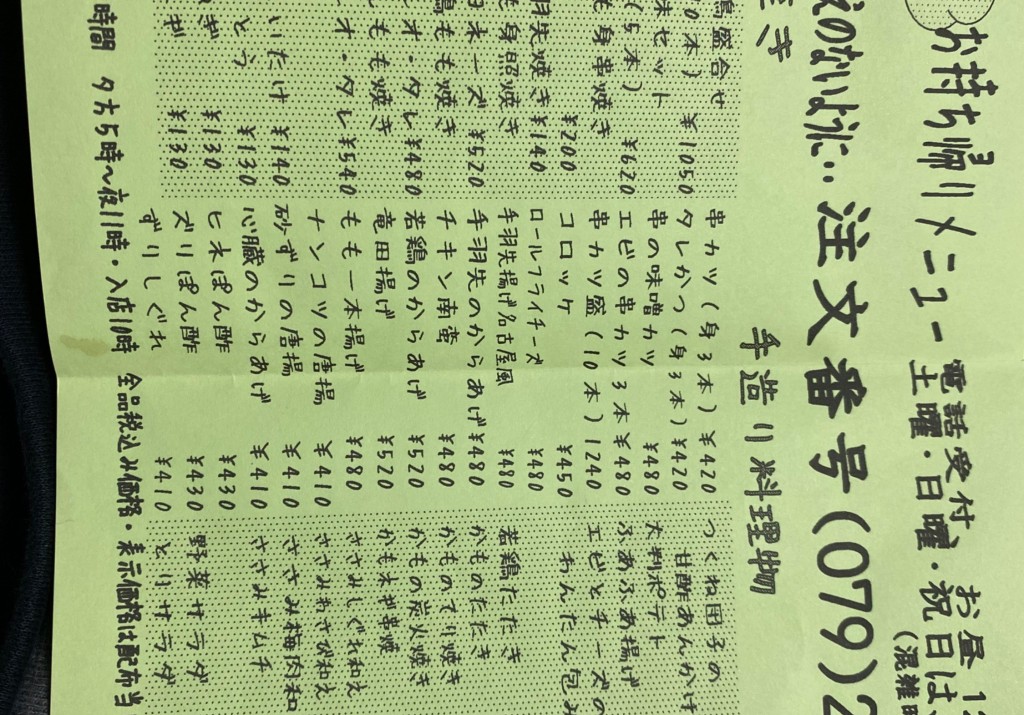 お持ち帰りメニュー 電話受付 お昼1
土曜・日曜・祝日は
のないように‥ 注文番号(079)2
手造り料理物
鶏盛合せ
0本) ¥1050
味セット
(5本) ¥620
も身串焼き
¥200
羽先焼き ¥140
も身照焼き
ヨネーズ ¥520
鶏もも焼き
オ・タレ ¥480
もも焼き
オ・タレ ¥540
いたけ ¥140
とう ¥130
ぎ ¥130
ギ ¥130
串カツ(身3本) ¥420
タレかつ(身3本) ¥420
串の味噌カツ ¥480
エビの串カツ3本 ¥480
串カツ盛(10本) 1240
コロッケ ¥450
ロールフライチーズ ¥480
手羽先揚げ名古屋風 ¥480
手羽先のからあげ ¥480
チキン南蛮 ¥480
若鶏のからあげ ¥520
竜田揚げ ¥520
もも一本揚げ ¥480
ナンコツの唐揚 ¥410
砂ずりの唐揚 ¥410
心臓のからあげ ¥410
ヒネぽん酢 ¥430
ズリぽん酢 ¥430
ずりしぐれ ¥410
つくね団子の
甘酢あんかけ
大判ポテト
ふあふあ揚げ
エビとチーズの
わんたん包み
若鶏たたき
かものたたき
かものてり焼き
かもの炭火焼き
かもネギ串焼
ささみしぐれ和え
ささみわさび和え
ささみ梅肉和
ささみキムチ
野菜サラダ
とりサラダ
時間 夕方5時〜夜11時・入店10時 全品税込み価格・表示価格は配布当